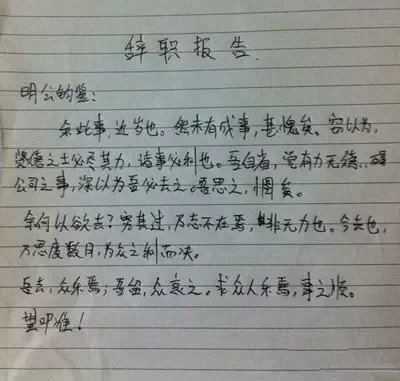 辞职报告.
明公钧鉴:
余此事,近岁也。然未有成事,甚愧矣。窃以为,
贤德之士必尽其力,诸事必利也。吾自省,觉有力无德,
公司之事,深以为吾必去之。吾思之,惘矣。
余何以欲去?究其过,乃志不在焉,非无力也。今去也,
乃思度数月,为众之利而决。
吾去,众乐焉;吾留,众哀之。求众人乐焉,事之顺。
望叩准!